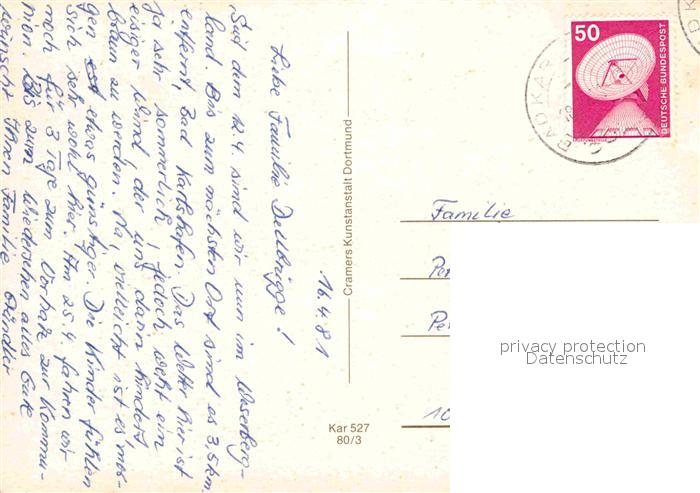 16.4.81
Liebe Familie Dellbrügge!
Seit dem 12.4. sind wir nun im Weserberg-
land. Bis zum nächsten Ort sind es 3,5 km
entfernt, Bad Karlshafen. Das Wetter hier ist
ja sehr sommerlich, jedoch weht ein
eisiger Wind, der uns daran hindert
braun zu werden. Na, vielleicht ist es mor-
gen etwas günstiger. Die Kinder fühlen
sich sehr wohl hier. Am 25.4. fahren wir
noch für 3 Tage zum Vorharz zur Kommu-
nion. Bis zum Wiedersehen alles Gute
wünscht Ihnen Familie
Cramers Kunstanstalt Dortmund
Kar 527
80/3
50
DEUTSCHE BUNDESPOST
BAD KAR
Familie
Pe
Pe
10
privacy protection
Datenschutz